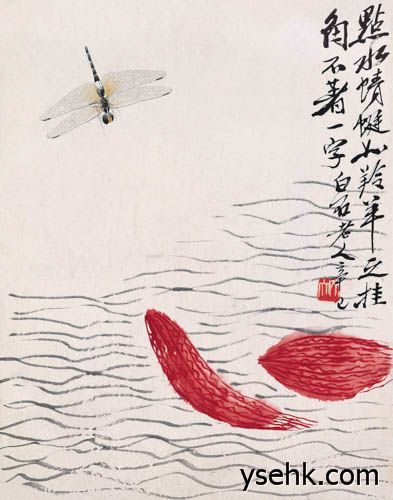 點水蜻蜓如羚羊之挂
角不著一字白石老人辛巳
ysehk.com